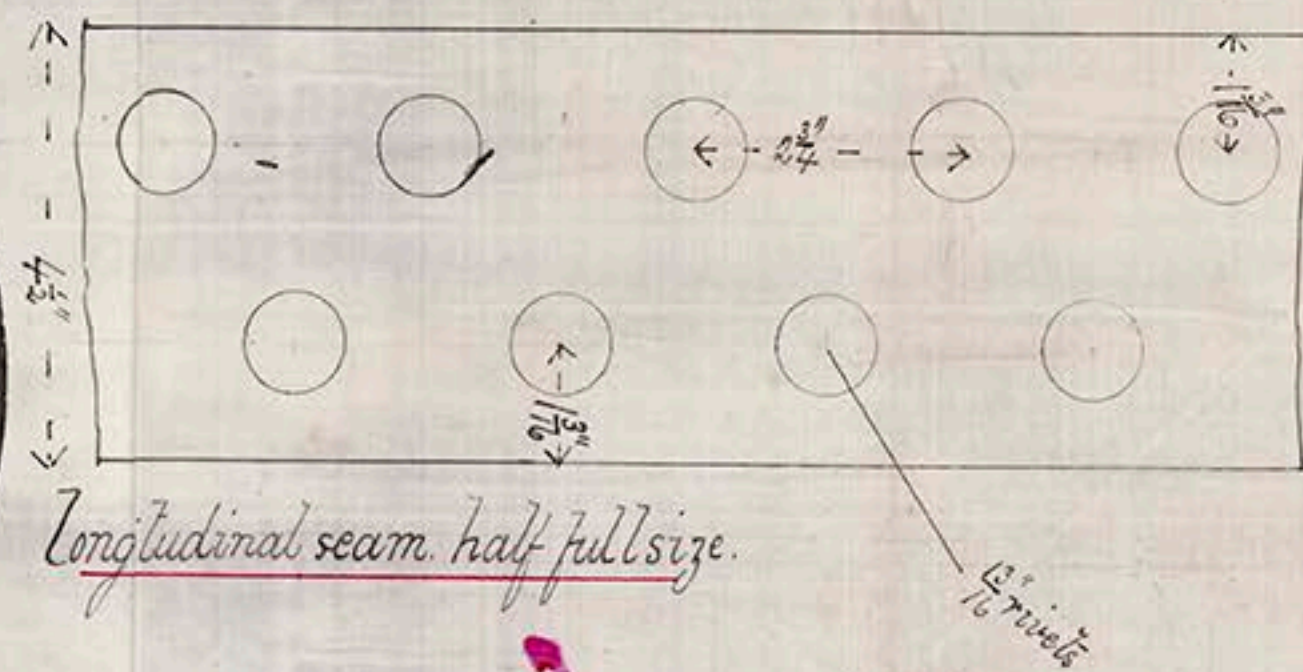 1 3/16"
2 3/4"
4 1/2"
1 3/16"
Longitudinal seam. half full size.
13/16" rivets